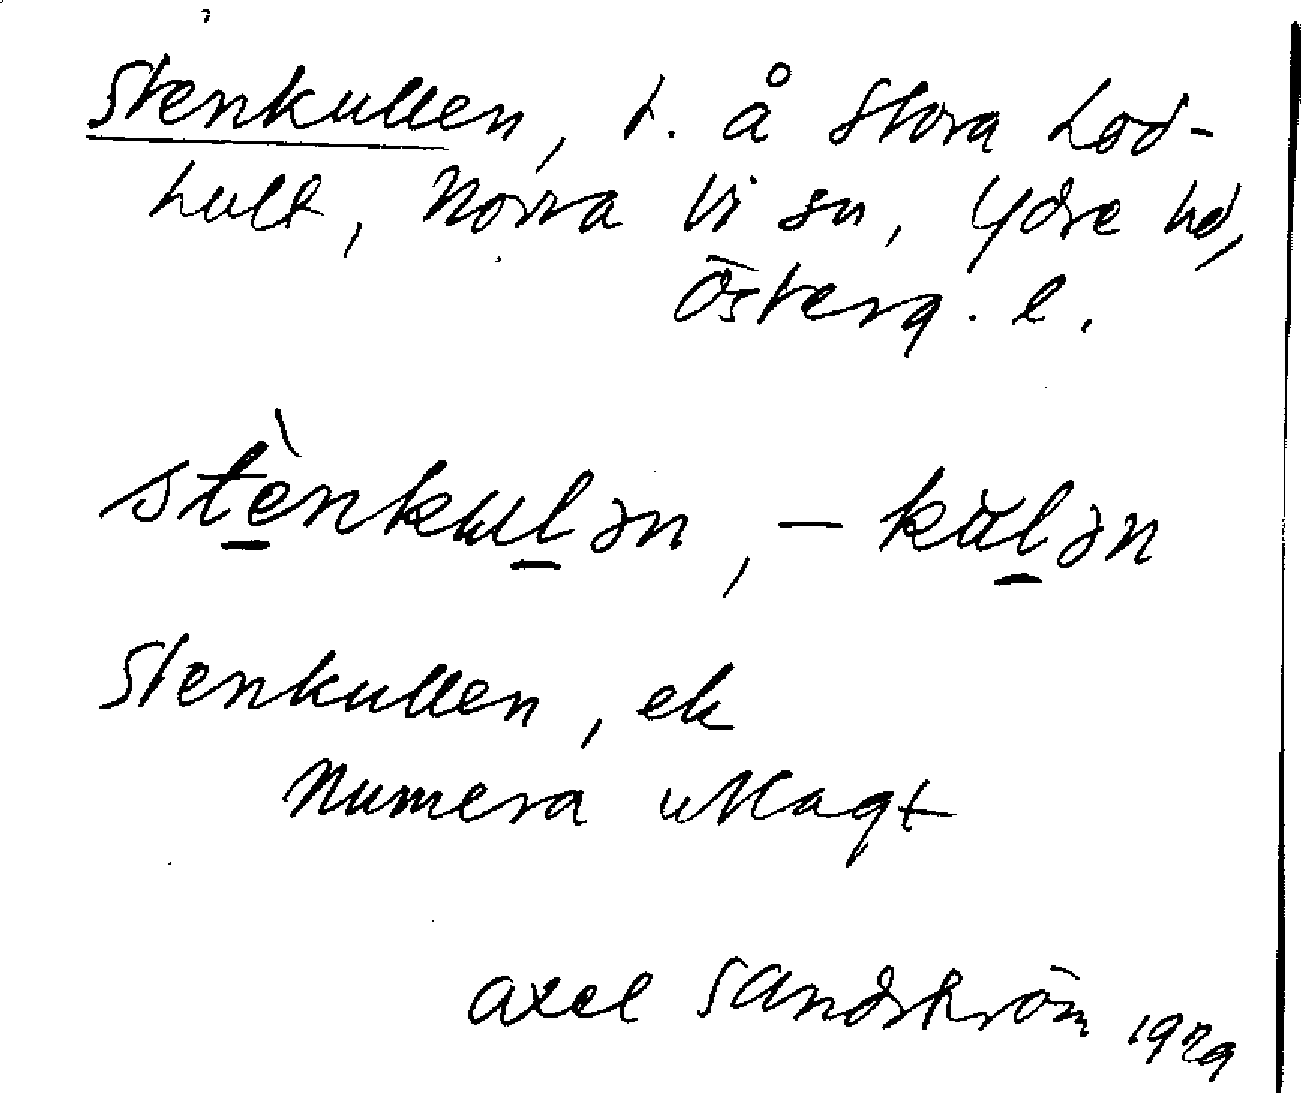 Stenkullen, t. å Stora Lod-
hult, Norra Vi sn, Ydre hd,
Österg. l.
stènkulən, -kùlən
Stenkullen, ek
Numera utlagt
Axel Sandström 1929